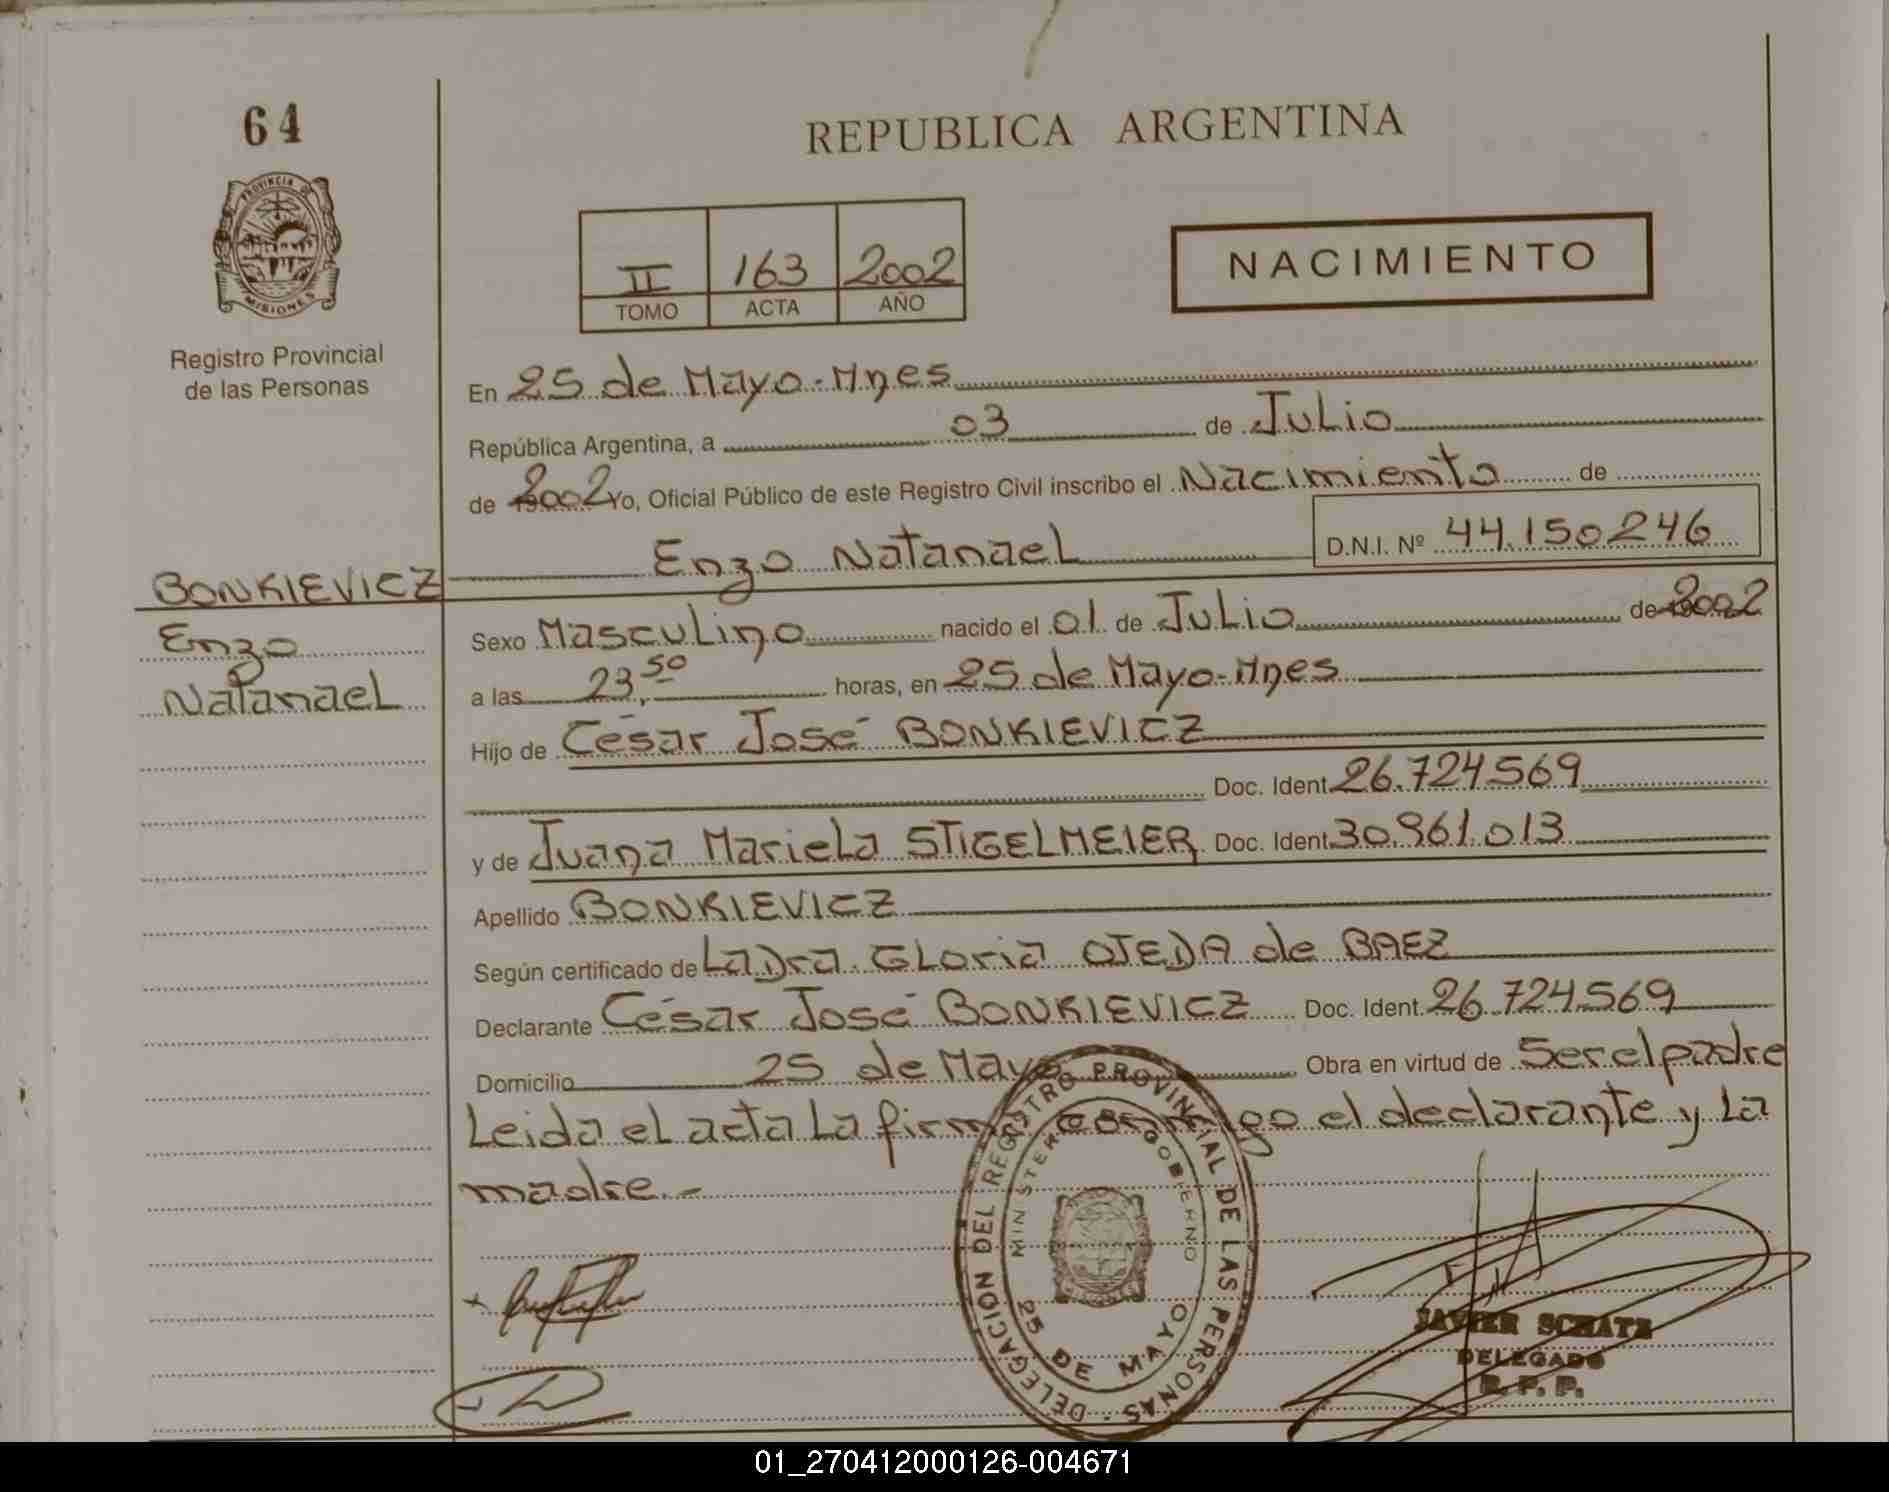 64
REPUBLICA ARGENTINA
PROVINCIA DE
MISIONES
Registro Provincial
de las Personas
II 163 2002
TOMO ACTA AÑO
NACIMIENTO
En 25 de Mayo-Mnes
República Argentina, a 03 de Julio
de 2002 Yo, Oficial Público de este Registro Civil inscribo el Nacimiento de
Enzo Natanael D.N.I. Nº 44.150246
BONKIEVICZ
Enzo
Natanael
Sexo Masculino nacido el 01 de Julio de 2002
a las 23,50 horas, en 25 de Mayo-Mnes
Hijo de César José BONKIEVICZ
Doc. Ident. 26.724569
y de Juana Mariela STIGELMEIER Doc. Ident. 30.961.013
Apellido BONKIEVICZ
Según certificado de La Dra. Gloria OJEDA de BAEZ
Declarante César José BONKIEVICZ Doc. Ident. 26.724.569
Domicilio 25 de Mayo Obra en virtud de Ser el padre
Leida el acta la firma conmigo el declarante y La
madre.-
DELEGACION DEL REGISTRO PROVINCIAL DE LAS PERSONAS
MINISTERIO GOBIERNO
25 DE MAYO
JAVIER SCHATZ
DELEGADO
R. P. P.
01_270412000126-004671